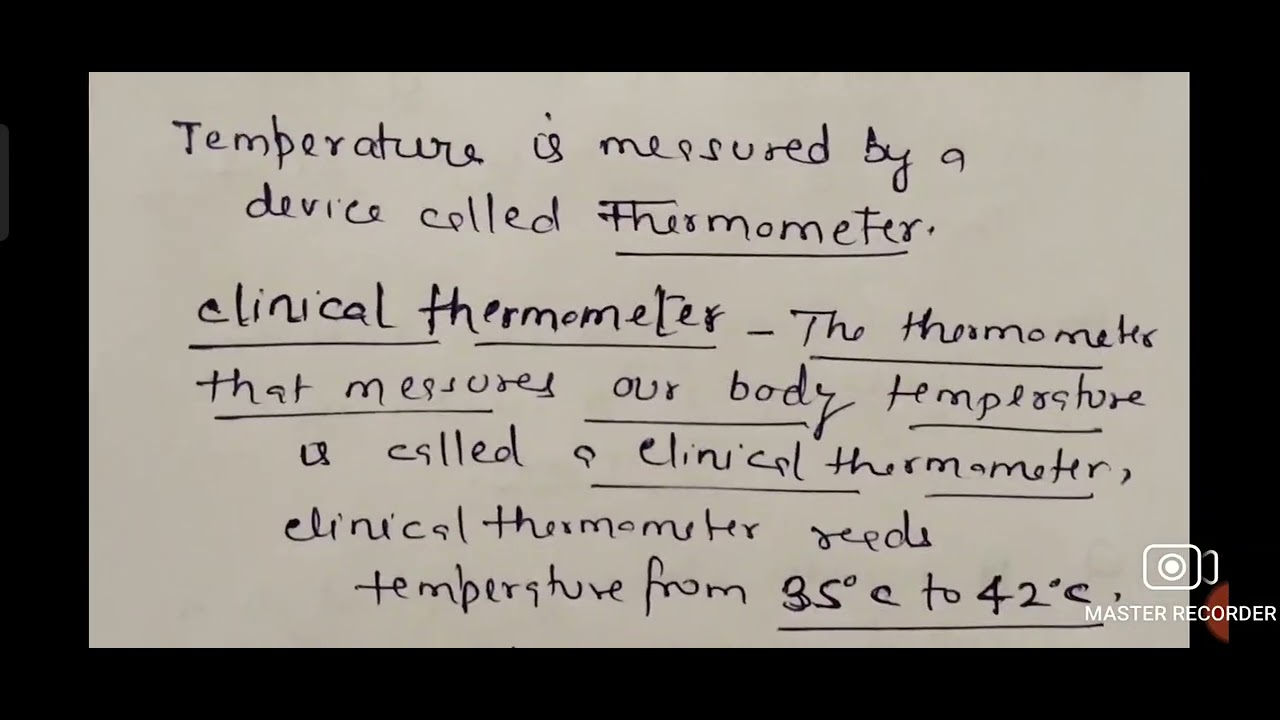 Temperature is measured by a
device called Thermometer.
clinical thermometer – The thermometer
that measures our body temperature
is called a clinical thermometer,
clinical thermometer reads
temperature from 35°c to 42°c.
MASTER RECORDER